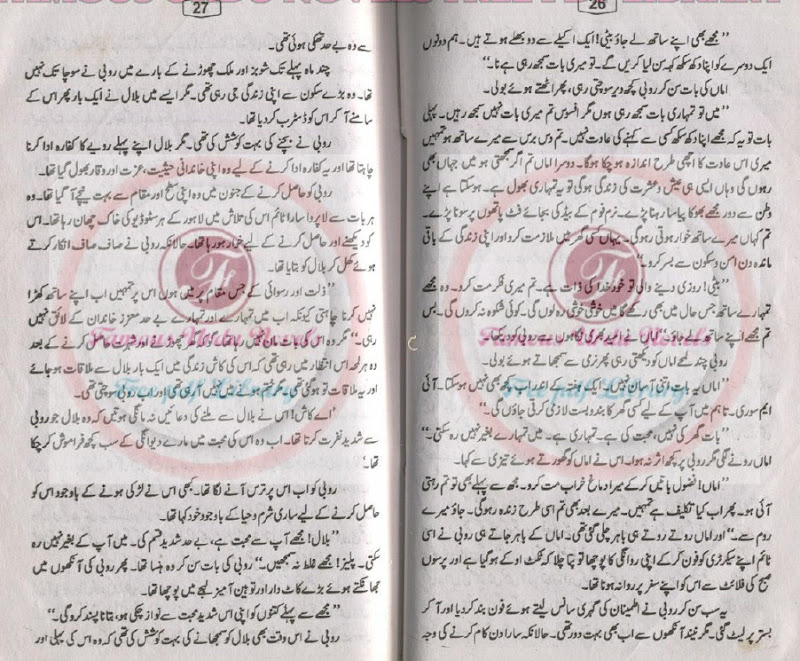 26
”مجھے بھی اپنے ساتھ لے جاؤ بیٹی! ایک اکیلے سے دو بھلے ہوتے ہیں۔ ہم دونوں
ایک دوسرے کو اپنا دکھ سکھ کہہ سن لیا کریں گے۔ تو میری بات سمجھ رہی ہے نا۔“
اماں کی بات سن کر روبی کچھ دیر سوچتی رہی، پھر اٹھتے ہوئے بولی۔
”میں تو تمہاری بات سمجھ رہی ہوں مگر افسوس تم میری بات نہیں سمجھ رہیں۔ پہلی
بات تو یہ کہ مجھے اپنا دکھ سکھ کسی سے کہنے کی عادت نہیں۔ تم دس برس سے میرے ساتھ ہو تمہیں
میری اس عادت کا اچھی طرح اندازہ ہو چکا ہوگا۔ دوسرا اماں تم اگر سمجھتی ہو میں جہاں بھی
رہوں گی وہاں ایسی ہی عیش و عشرت کی زندگی ہوگی تو یہ تمہاری بھول ہے۔ ہوسکتا ہے اپنے
وطن سے دور مجھے بھوکا پیاسا رہنا پڑے۔ نرم فوم کے بیڈ کی بجائے فٹ پاتھوں پر سونا پڑے۔
تم کہاں میرے ساتھ خوار ہوتی رہوگی۔ یہاں کسی گھر میں ملازمت کرو اور اپنی زندگی کے باقی
ماندہ دن امن و سکون سے بسر کرو۔“
”بیٹی! روزی دینے والی تو خود خدا کی ذات ہے۔ تم میری فکر مت کرو۔ وہ مجھے
تمہارے ساتھ جس حال میں بھی رکھے گا میں خوشی خوشی رہ لوں گی۔ کوئی شکوہ نہ کروں گی۔ بس
تم مجھے اپنے ساتھ لے جاؤ۔“ اماں نے امید بھری نگاہوں سے روبی کو دیکھا۔
روبی چند لمحے اماں کو دیکھتی رہی پھر نرمی سے سمجھاتے ہوئے بولی۔
”اماں یہ بات اتنی آسان نہیں ہے۔ ایک ہفتے کے اندر اب کچھ بھی نہیں ہوسکتا۔ آئی
ایم سوری۔ تاہم میں آپ کے لیے کسی گھر کا بندوبست لازمی کرتی جاؤں گی۔“
”بات گھر کی نہیں، محبت کی ہے۔ تمہاری ہے۔ میں تمہارے بغیر نہیں رہ سکتی۔“
اماں رونے لگی مگر روبی پر کچھ اثر نہ ہوا۔ اس نے اماں کو گھورتے ہوئے تیزی سے کہا۔
”اماں! فضول باتیں کرکے میرا دماغ خراب مت کرو۔ مجھ سے پہلے بھی تو تم رہتی
آئی ہو۔ پھر اب کیا تکلیف ہے تمہیں۔ میرے بعد بھی تم اسی طرح زندہ رہوگی۔ جاؤ میرے
روم سے۔“ اور اماں روتے روتے ہی باہر چلی گئی تھی۔ اماں کے باہر جاتے ہی روبی نے اسی
ٹائم اپنے سیکرٹری کو فون کرکے اپنی روانگی کا پوچھا تو پتا چلا کہ ٹکٹ اوکے ہوگیا ہے اور پرسوں
صبح کی فلائٹ سے اس کو اپنے سفر پر روانہ ہونا تھا۔
یہ سب سن کر روبی نے اطمینان کی گہری سانس لیتے ہوئے فون بند کردیا اور آ کر
بستر پر لیٹ گئی۔ مگر نیند آنکھوں سے اب بھی بہت دور تھی۔ حالانکہ سارا دن کام کرنے کی وجہ
27
سے وہ بے حد تھکی ہوئی تھی۔
چند ماہ پہلے تک شوبز اور ملک چھوڑنے کے بارے میں روبی نے سوچا تک نہیں
تھا۔ وہ بڑے سکون سے اپنی زندگی جی رہی تھی۔ مگر ایسے میں بلال نے ایک بار پھر اس کے
سامنے آ کر اس کو ڈسٹرب کردیا تھا۔
روبی نے بچنے کی بہت کوشش کی تھی۔ مگر بلال اپنے پہلے رویے کا کفارہ ادا کرنا
چاہتا تھا اور یہ کفارہ ادا کرنے کے لیے وہ اپنی خاندانی حیثیت، عزت اور وقار بھول گیا تھا۔
روبی کو حاصل کرنے کے جنون میں وہ اپنی سطح اور مقام سے بہت نیچے آ گیا تھا۔ وہ
ہر بات سے لاپروا سارا ٹائم اس کی تلاش میں لاہور کے ہر سٹوڈیو کی خاک چھان رہا تھا۔ اس
کو دیکھنے اور حاصل کرنے کے لیے خوار ہو رہا تھا۔ حالانکہ روبی نے صاف صاف انکار کرتے
ہوئے کھل کر بلال کو بتایا تھا۔
”ذلت اور رسوائی کے جس مقام پر میں ہوں اس پر تمہیں اب اپنے ساتھ کھڑا
نہیں کرنا چاہتی کیونکہ اب میں تمہارے اور تمہارے بے حد معزز خاندان کے لائق نہیں
رہی۔“ مگر وہ اس کی بات مان نہیں رہا تھا۔ گھر چھوڑنے اور شہرت حاصل کرنے کے بعد
وہ ہر لمحہ اس انتظار میں رہی تھی کہ اس کی کاش زندگی میں ایک بار بلال سے ملاقات ہوجائے
اور یہ ملاقات تو ہوگئی تھی مگر ختم ہونے میں نہیں آ رہی تھی اور اب روبی سوچتی تھی۔
’اے کاش! اس نے بلال سے ملنے کی دعائیں نہ مانگی ہوتیں کہ وہ بلال جو روبی
سے شدید نفرت کرتا تھا۔ اب وہ اس کی محبت میں مارے دیوانگی کے سب کچھ فراموش کرچکا
تھا‘
روبی کو اب اس پر ترس آنے لگا تھا۔ کبھی اس نے لڑکی ہونے کے باوجود اس کو
حاصل کرنے کے لیے ساری شرم و حیا کے باوجود خود کہا تھا۔
”بلال! مجھے آپ سے محبت ہے، بے حد شدید قسم کی۔ میں آپ کے بغیر نہیں رہ
سکتی۔ پلیز! مجھے غلط نہ سمجھیں۔“ روبی کی بات سن کر وہ ہنسا تھا۔ پھر روبی کی آنکھوں میں
جھانکتے ہوئے بڑے کاٹ دار اور توہین آمیز لہجے میں پوچھا تھا۔
”مجھ سے پہلے کتنوں کو اپنی اس شدید محبت سے نواز چکی ہو، بتانا پسند کروگی۔“
روبی نے اس وقت بھی بلال کو سمجھانے کی بہت کوشش کی تھی کہ وہ اس کی پہلی اور
Famous Urdu Novels
Free pdf Library
Famous Urdu Novels
Free pdf Library